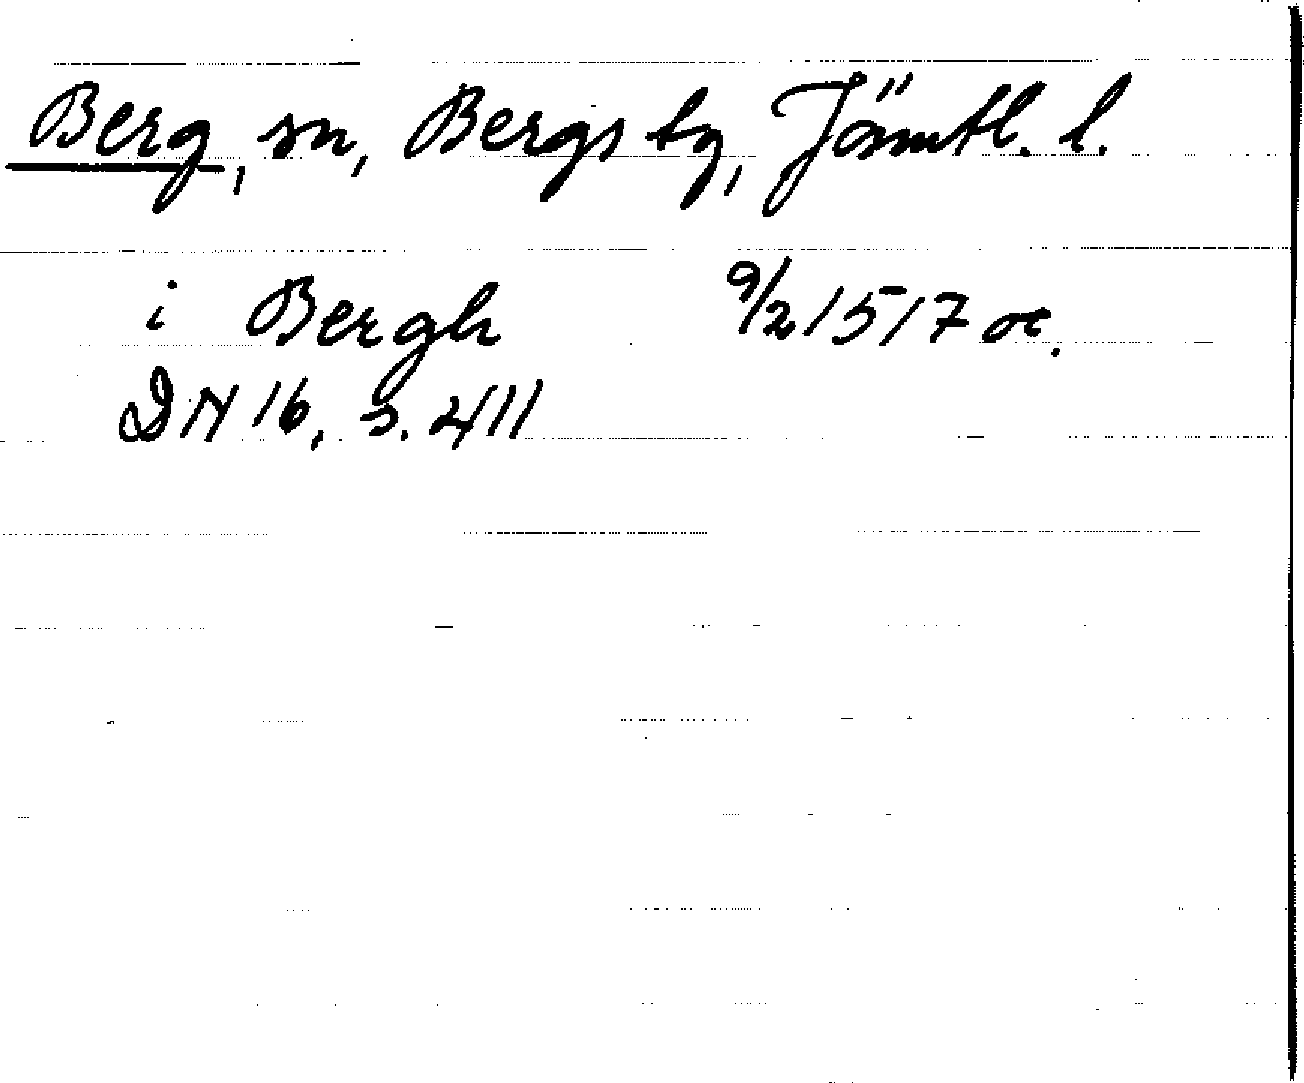 Berg, sn, Bergs tg, Jämtl. l.
i Bergh 9/2 1517 or.
DN 16, s. 411